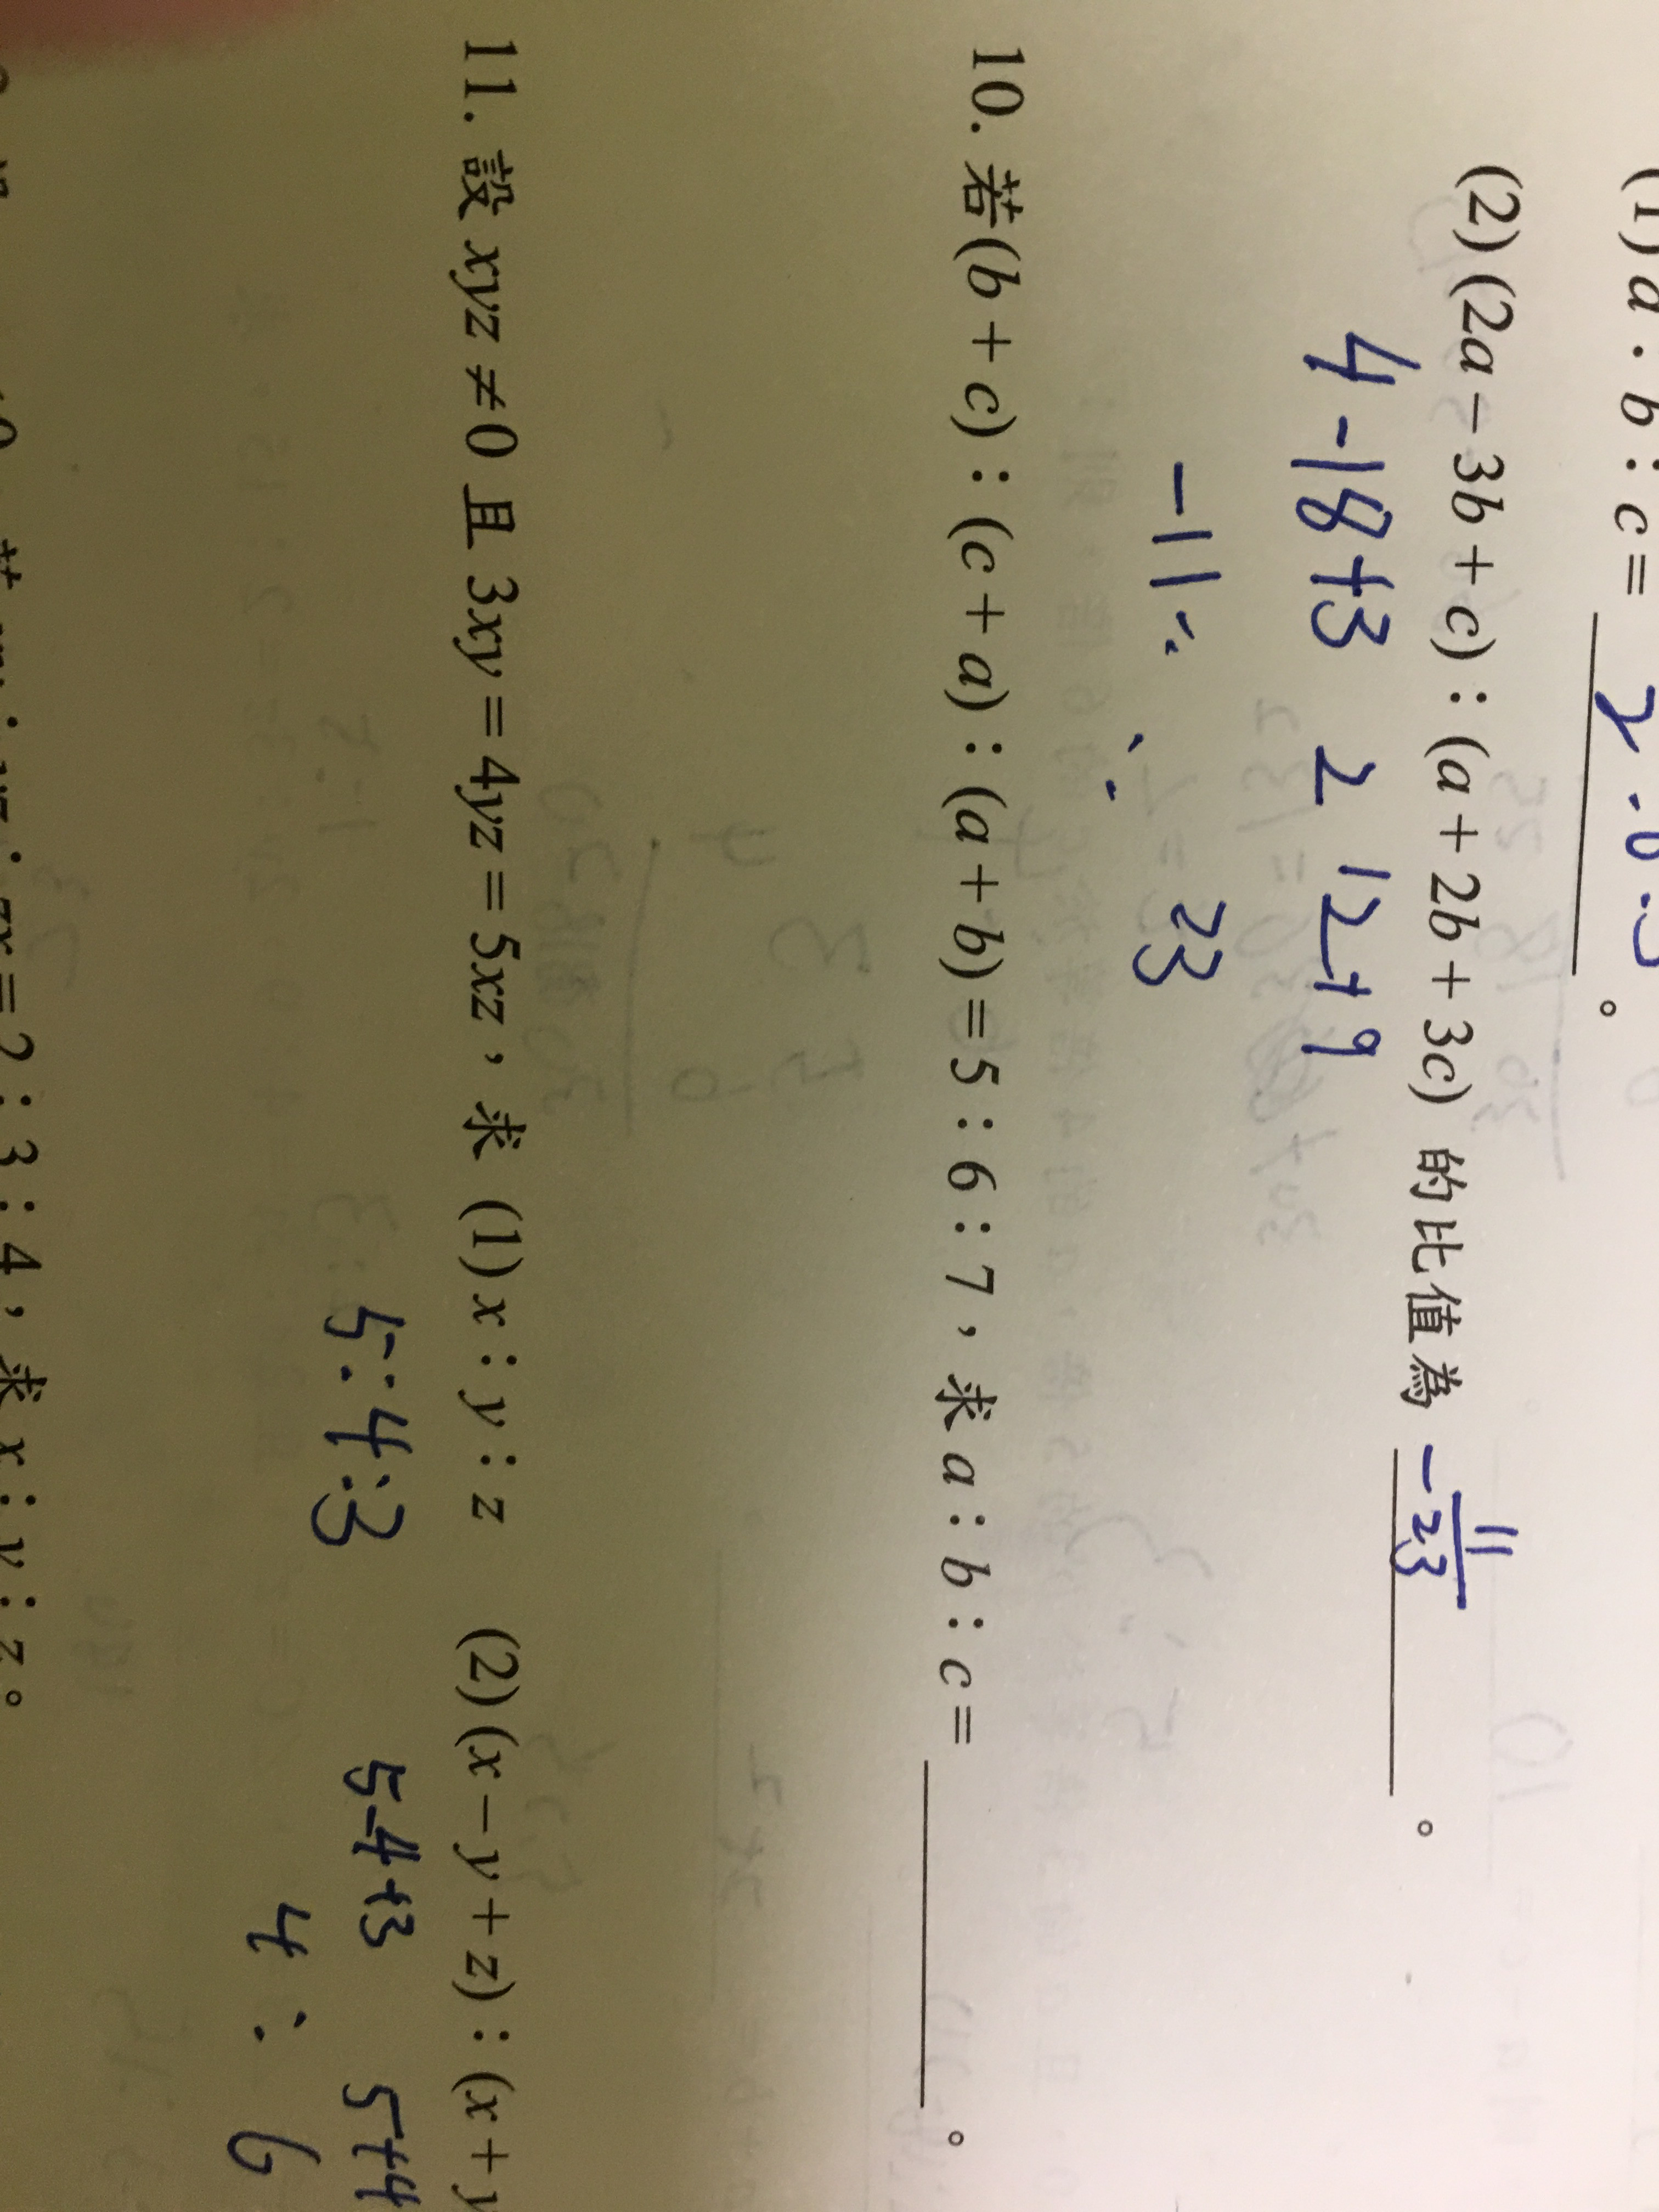 (1) a : b : c = 2 : 6 : 3 。
(2) (2a − 3b + c) : (a + 2b + 3c) 的比值為 −11/23 。
4 −18+3 2 12+9
−11 : 23
10. 若(b + c) : (c + a) : (a + b) = 5 : 6 : 7，求 a : b : c = 。
11. 設 xyz ≠ 0 且 3xy = 4yz = 5xz，求 (1) x : y : z (2) (x − y + z) : (x + y
5:4:3 5−4+3 5+4
4 : 6
= 2 : 3 : 4，求 x : y : z。